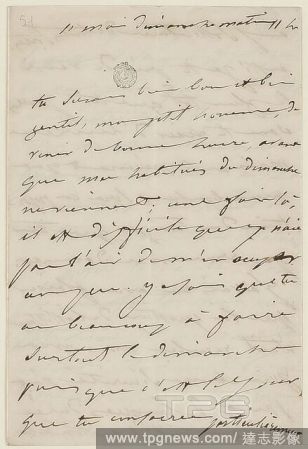 11 mai dimanche matin 11 h
tu serais bien bon et bien
gentil, mon petit homme, de
venir de bonne heure, avant
que mes habitués du dimanche
ne viennent, une fois là
il est difficile que je n'aie
pas l'air de m'en occuper
un peu. je sais que tu
as beaucoup à faire
surtout le dimanche
puisque c'est le jour
que tu consacres
TPG
www.tpgnews.com/達志影像